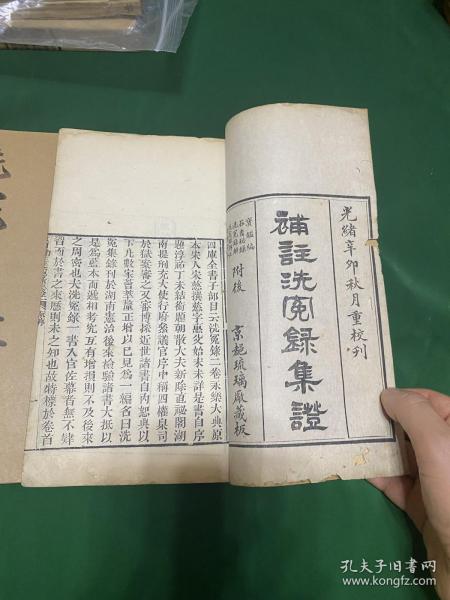 光緒辛卯秋月重校刊
補註洗冤錄集證
寶鑑編
石香秘錄
洗冤錄解
附後
京都琉璃廠藏板
四庫全書子部目云洗冤錄二卷永樂大典原
本宋人宋慈撰慈字惠父始末未詳是書自序
題淳祐丁未結銜題朝散大夫新除直祕閣湖
南提刑充大使行府參議官序中稱四權臬司
於獄案審之又審博採近世諸書自內恕錄以
下凡數家會萃釐正增以己見為一編名曰洗
冤集錄刊於湖南憲治後來檢驗諸書大抵以
是為藍本而遞相考究互有增損則不及後來
之周密也夫洗冤錄一書入官佐幕者無不肄
習而於書之來歷則未之知也故特標於卷首
孔夫子旧书网
kongfz.com